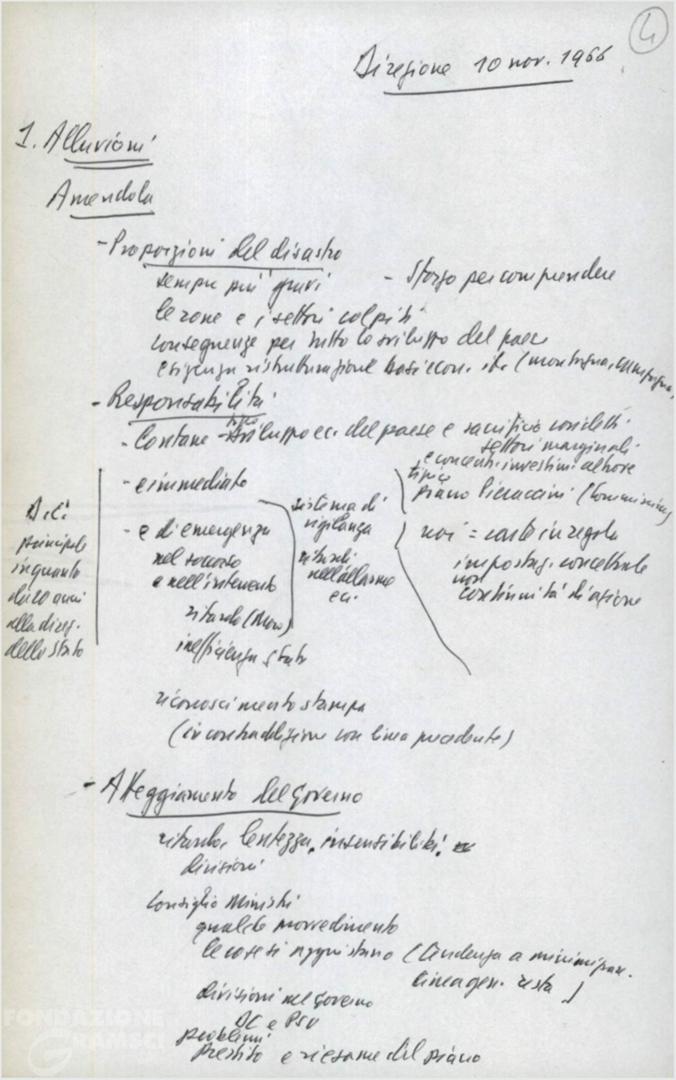 4
Direzione 10 nov. 1966
1. Alluvioni
Amendola
- Proporzioni del disastro
sempre più gravi
- Sforzo per comprendere
le zone e i settori colpiti
conseguenze per tutto lo sviluppo del paese
esigenza ristrutturazione basi econ. it. (montagna, campagna,
- Responsabilità
- Lontane - tipo sviluppo ec. del paese e sacrificio cosidetti
settori marginali
e concentr. investim. altrove
- e immediate
tipico
piano Pieraccini (
- e di emergenza
nel soccorso
e nell'intervento
ritardo (Moro)
inefficienza Stato
sistema di
vigilanza
ritardi
nell'allarme
ecc.
noi = carte in regola
impostaz. concettuale
non
continuità di azione
D.C.
principale
in quanto
da 20 anni
alla direz.
dello stato
riconoscimento stampa
(in contraddizione con linea precedente)
- Atteggiamento del Governo
ritardo, lentezza, insensibilità,
divisioni
Consiglio Ministri
qualche provvedimento
le cose si aggiustano (tendenza a
linea gen. resta)
divisioni nel Governo
DC e PSU
problemi
prestito e riesame del piano
FONDAZIONE
GRAMSCI